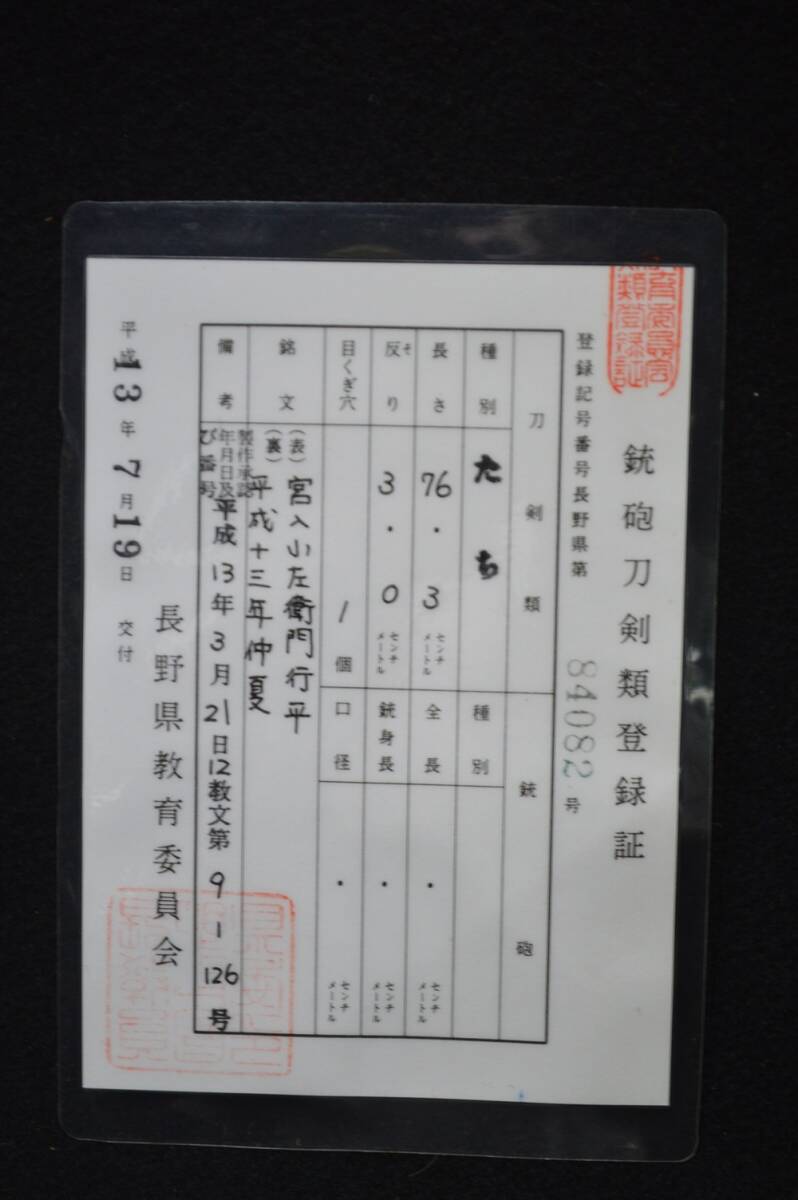 銃砲刀剣類登録証
登録記号番号長野県第 84082 号
刀剣類
種別 たち
長さ 76.3 センチメートル
反り そ 3.0 センチメートル
目くぎ穴 1 個
銘文
(表) 宮入小左衛門行平
(裏) 平成十三年仲夏
備考
製作承認年月日及び番号 平成13年3月21日12教文第9-1-126号
銃砲
種別
全長 ・ センチメートル
銃身長 ・ センチメートル
口径 ・ センチメートル
平成13年7月19日 交付
長野県教育委員会